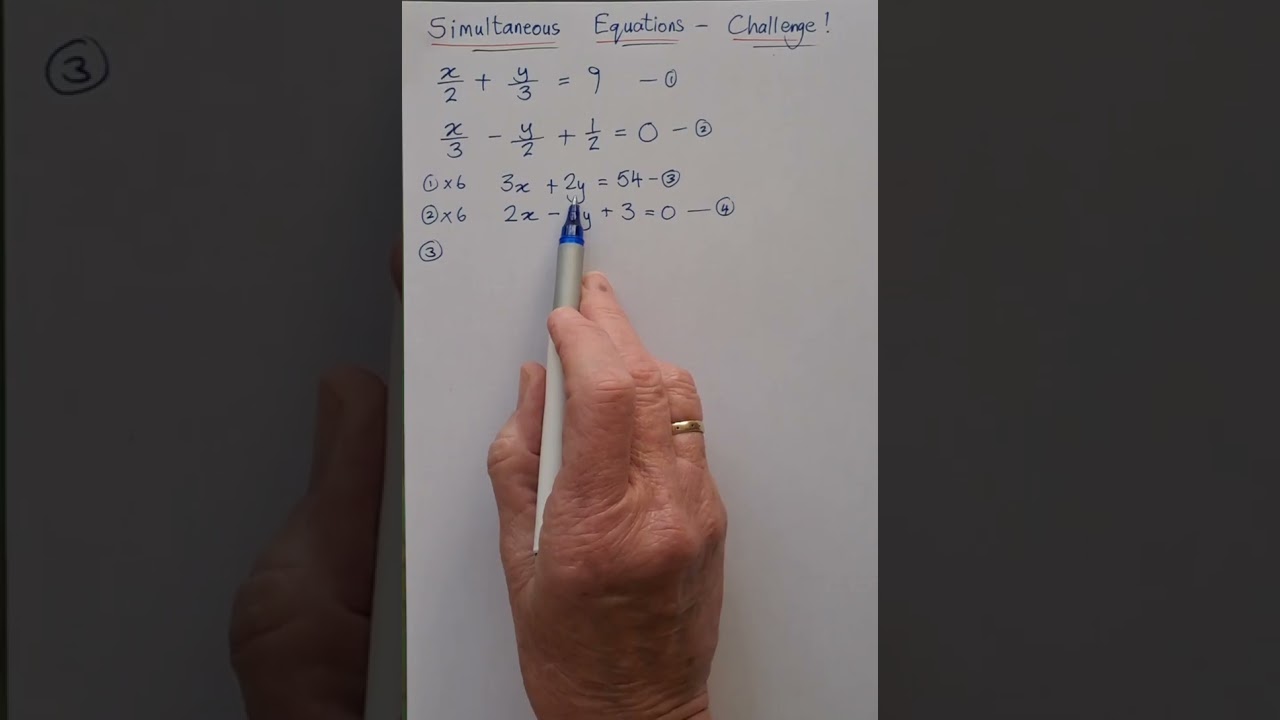 Simultaneous Equations - Challenge!
x/2 + y/3 = 9 - ①
x/3 - y/2 + 1/2 = 0 - ②
① × 6 3x + 2y = 54 - ③
② × 6 2x - y + 3 = 0 - ④
③
③